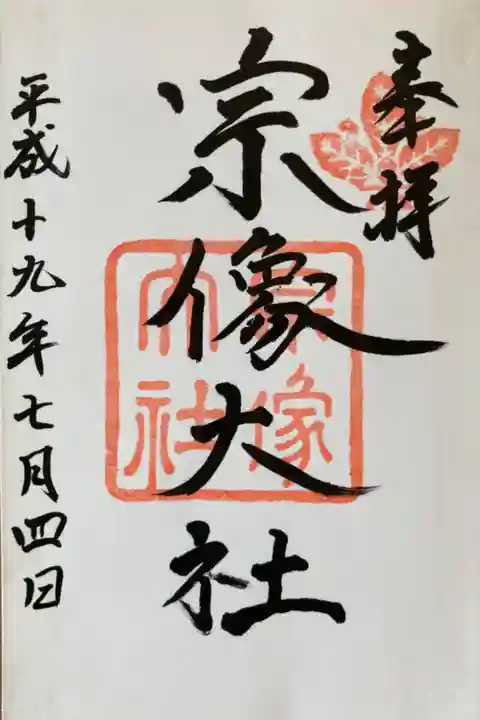 奉拝
宗像大社
宗像大社
平成十九年七月四日